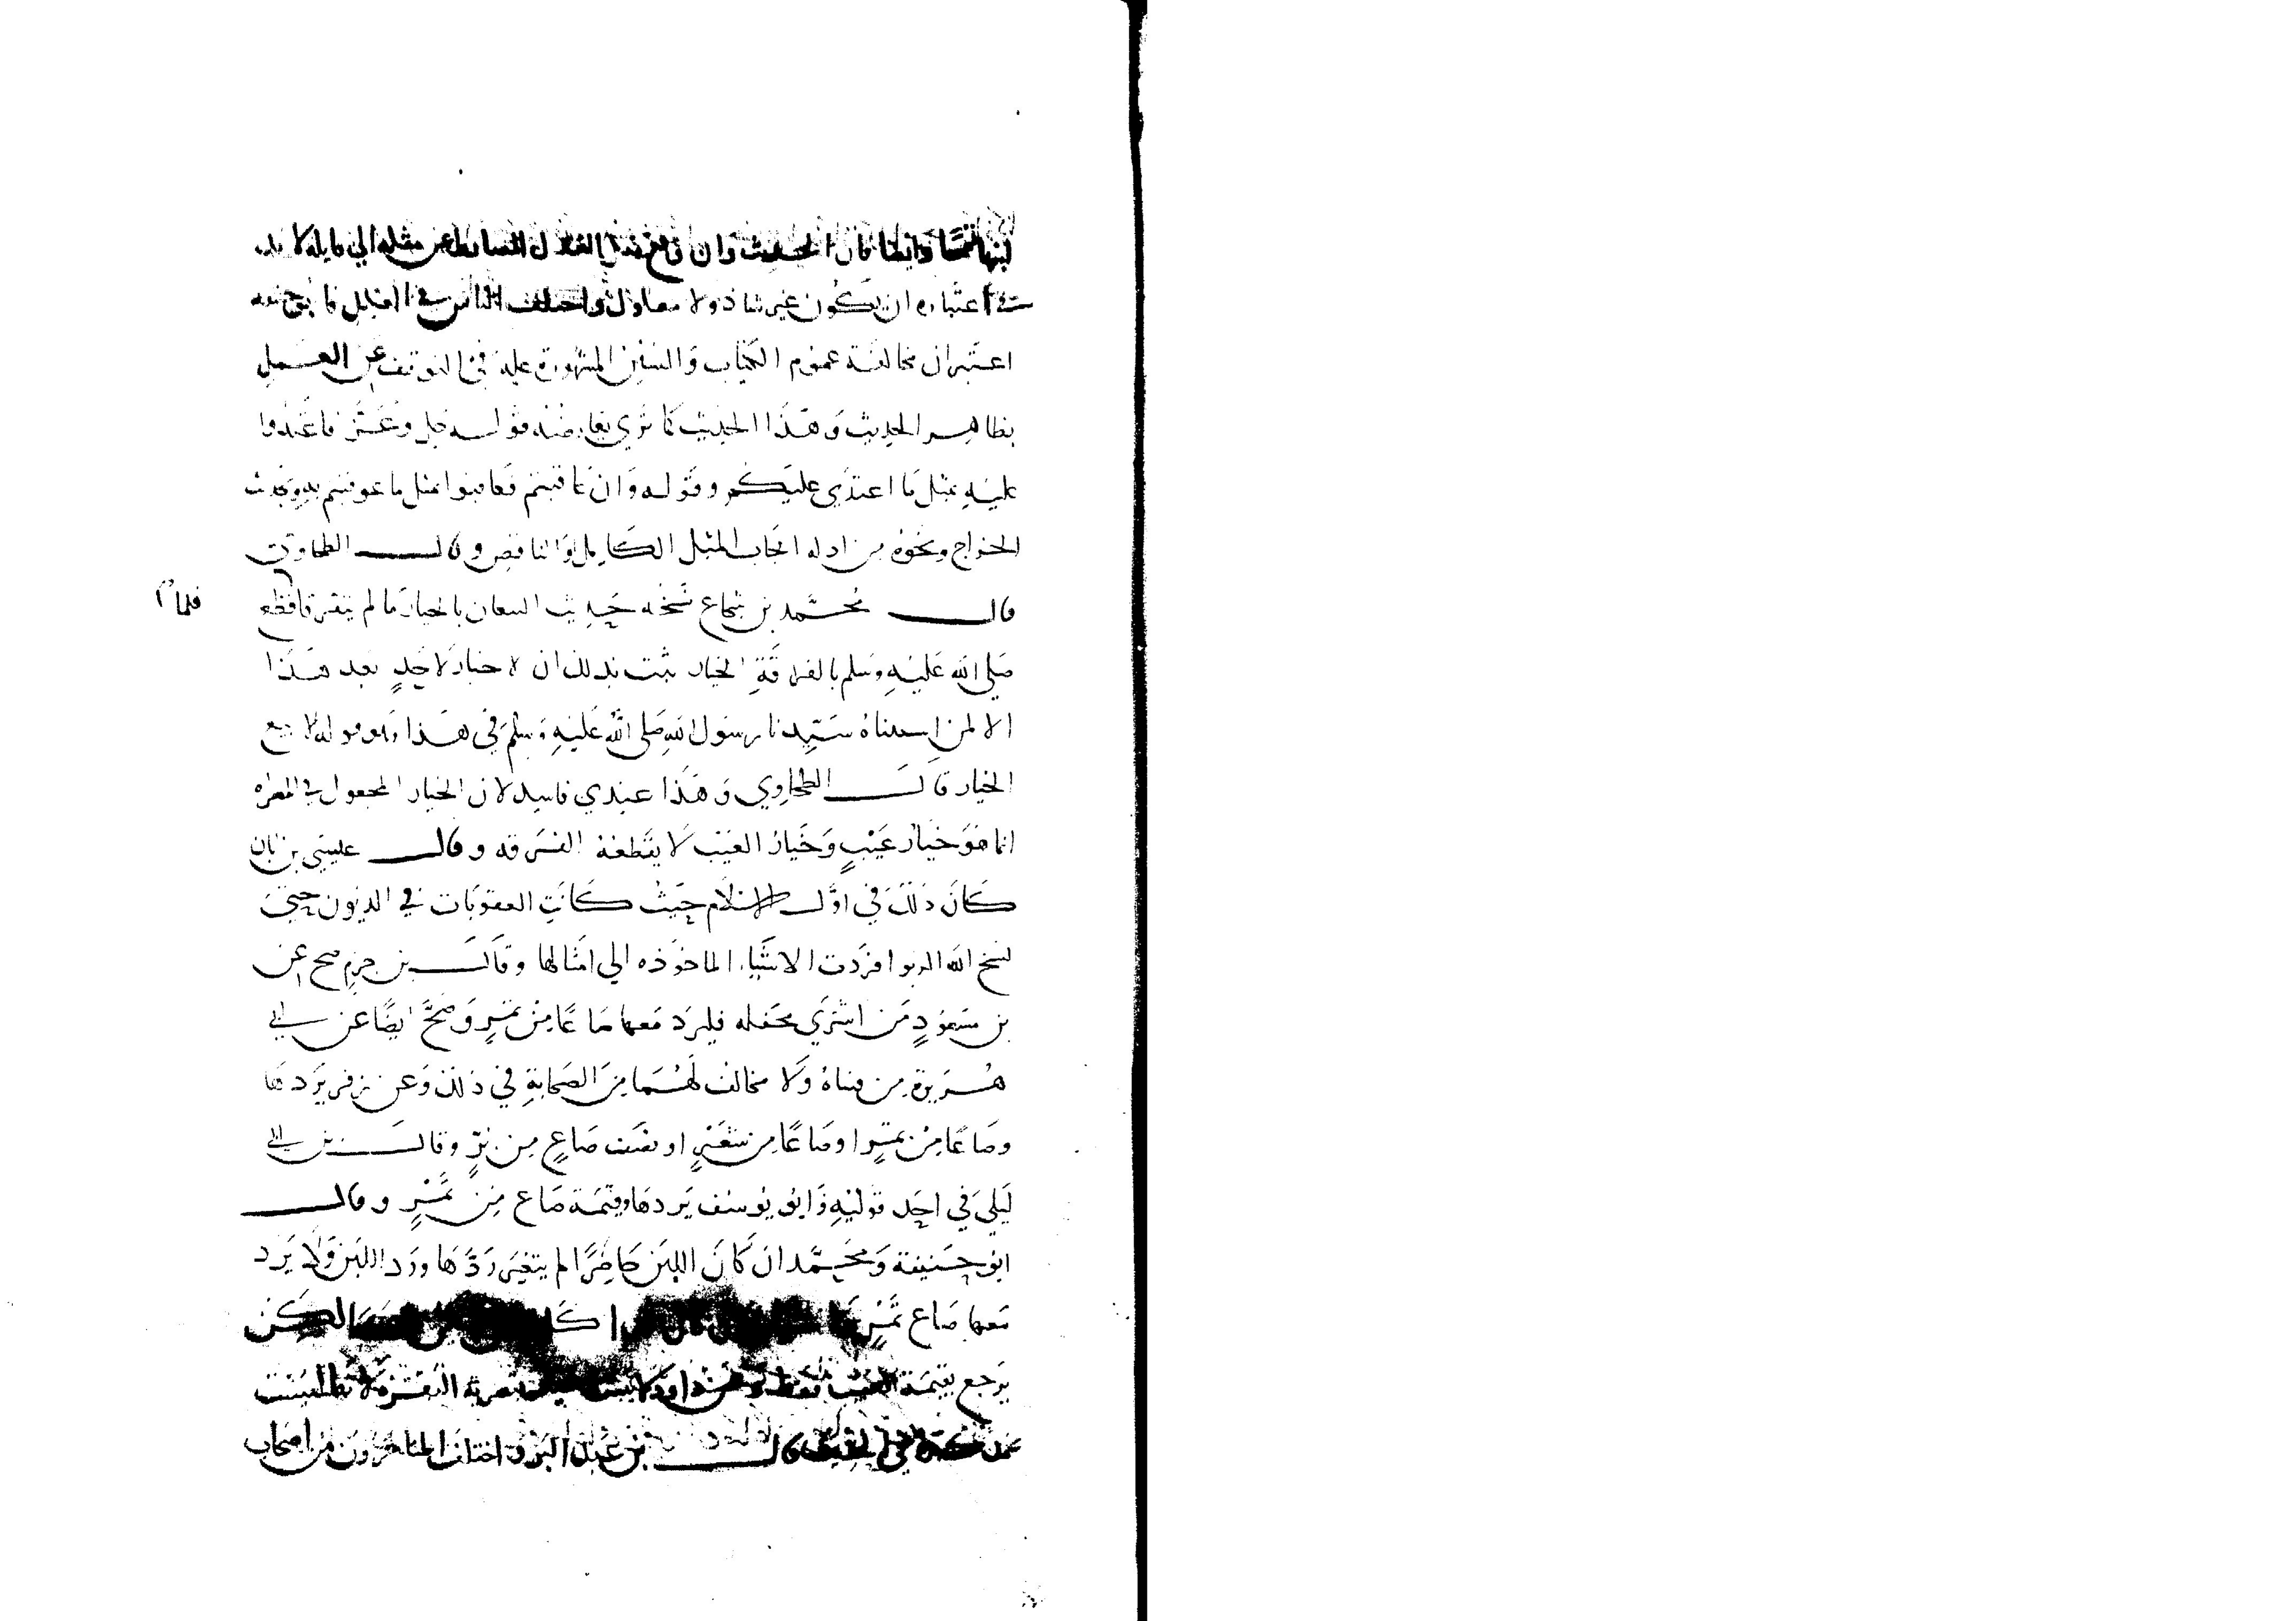 لبنها تمسا وايضا فان الحديث وان وقع بنقل العدل الضابط عن مثله الي قايله لا بد
في اعتباره ان يكون غير شاذ ولا معلول واختلف الناس في
اعتبران مخالفة عموم الكتاب والسنن المشهورة عليه في التوقف عن العمل
بظاهر الحديث وهذا الحديث كما تري يعارضه قوله جل وعز فاعتدوا
عليه بمثل ما اعتدي عليكم وقوله وان عاقبتم فعاقبوا بمثل ما عوقبتم به وحديث
الخراج ونحوه من ادله ايجاب المثل الكامل او الناقص وقال الطحاوي
قال محمد بن شجاع نسخه حديث البيعان بالخيار ما لم يتفرقا فلما قطع
صلي الله عليه وسلم بالفرقة الخيار ثبت بذلك ان لا خيار لاحد بعد هذا
الا لمن استثناه سيدنا رسول الله صلي الله عليه وسلم في هذا وهو قوله الا بيع
الخيار قال الطحاوي وهذا عندي فاسد لان الخيار المجعول في المصراه
انما هو خيار عيب وخيار العيب لا يقطعه الفرقه وقال عيسي بن ابان
كان ذلك في اول الاسلام حيث كانت العقوبات في الديون حتي
نسخ الله الربوا فردت الاشياء الماخوذه الي امثالها وقال بن حزم صح عن
بن مسعود من اشتري محفله فليرد معها صاعا من تمر وصح ايضا عن ابي
هريرة من فتياه ولا مخالف لهما من الصحابة في ذلك وعن زفر يردها
وصاعا من تمر او صاعا من شعير او نصف صاع من بر وقال بن ابي
ليلي في احد قوليه وابو يوسف يردها وقيمة صاع من تمر وقال
ابو حنيفة ومحمد ان كان اللبن حاضرا لم يتغير ردها ورد اللبن ولا يرد
معها صاع تمر لكن
يرجع بقيمة العيب فقط وعن داود لا يثبت بتصرية البقرة لا نها ليست
قال بن عبد البر واختلف المتاخرون من اصحاب